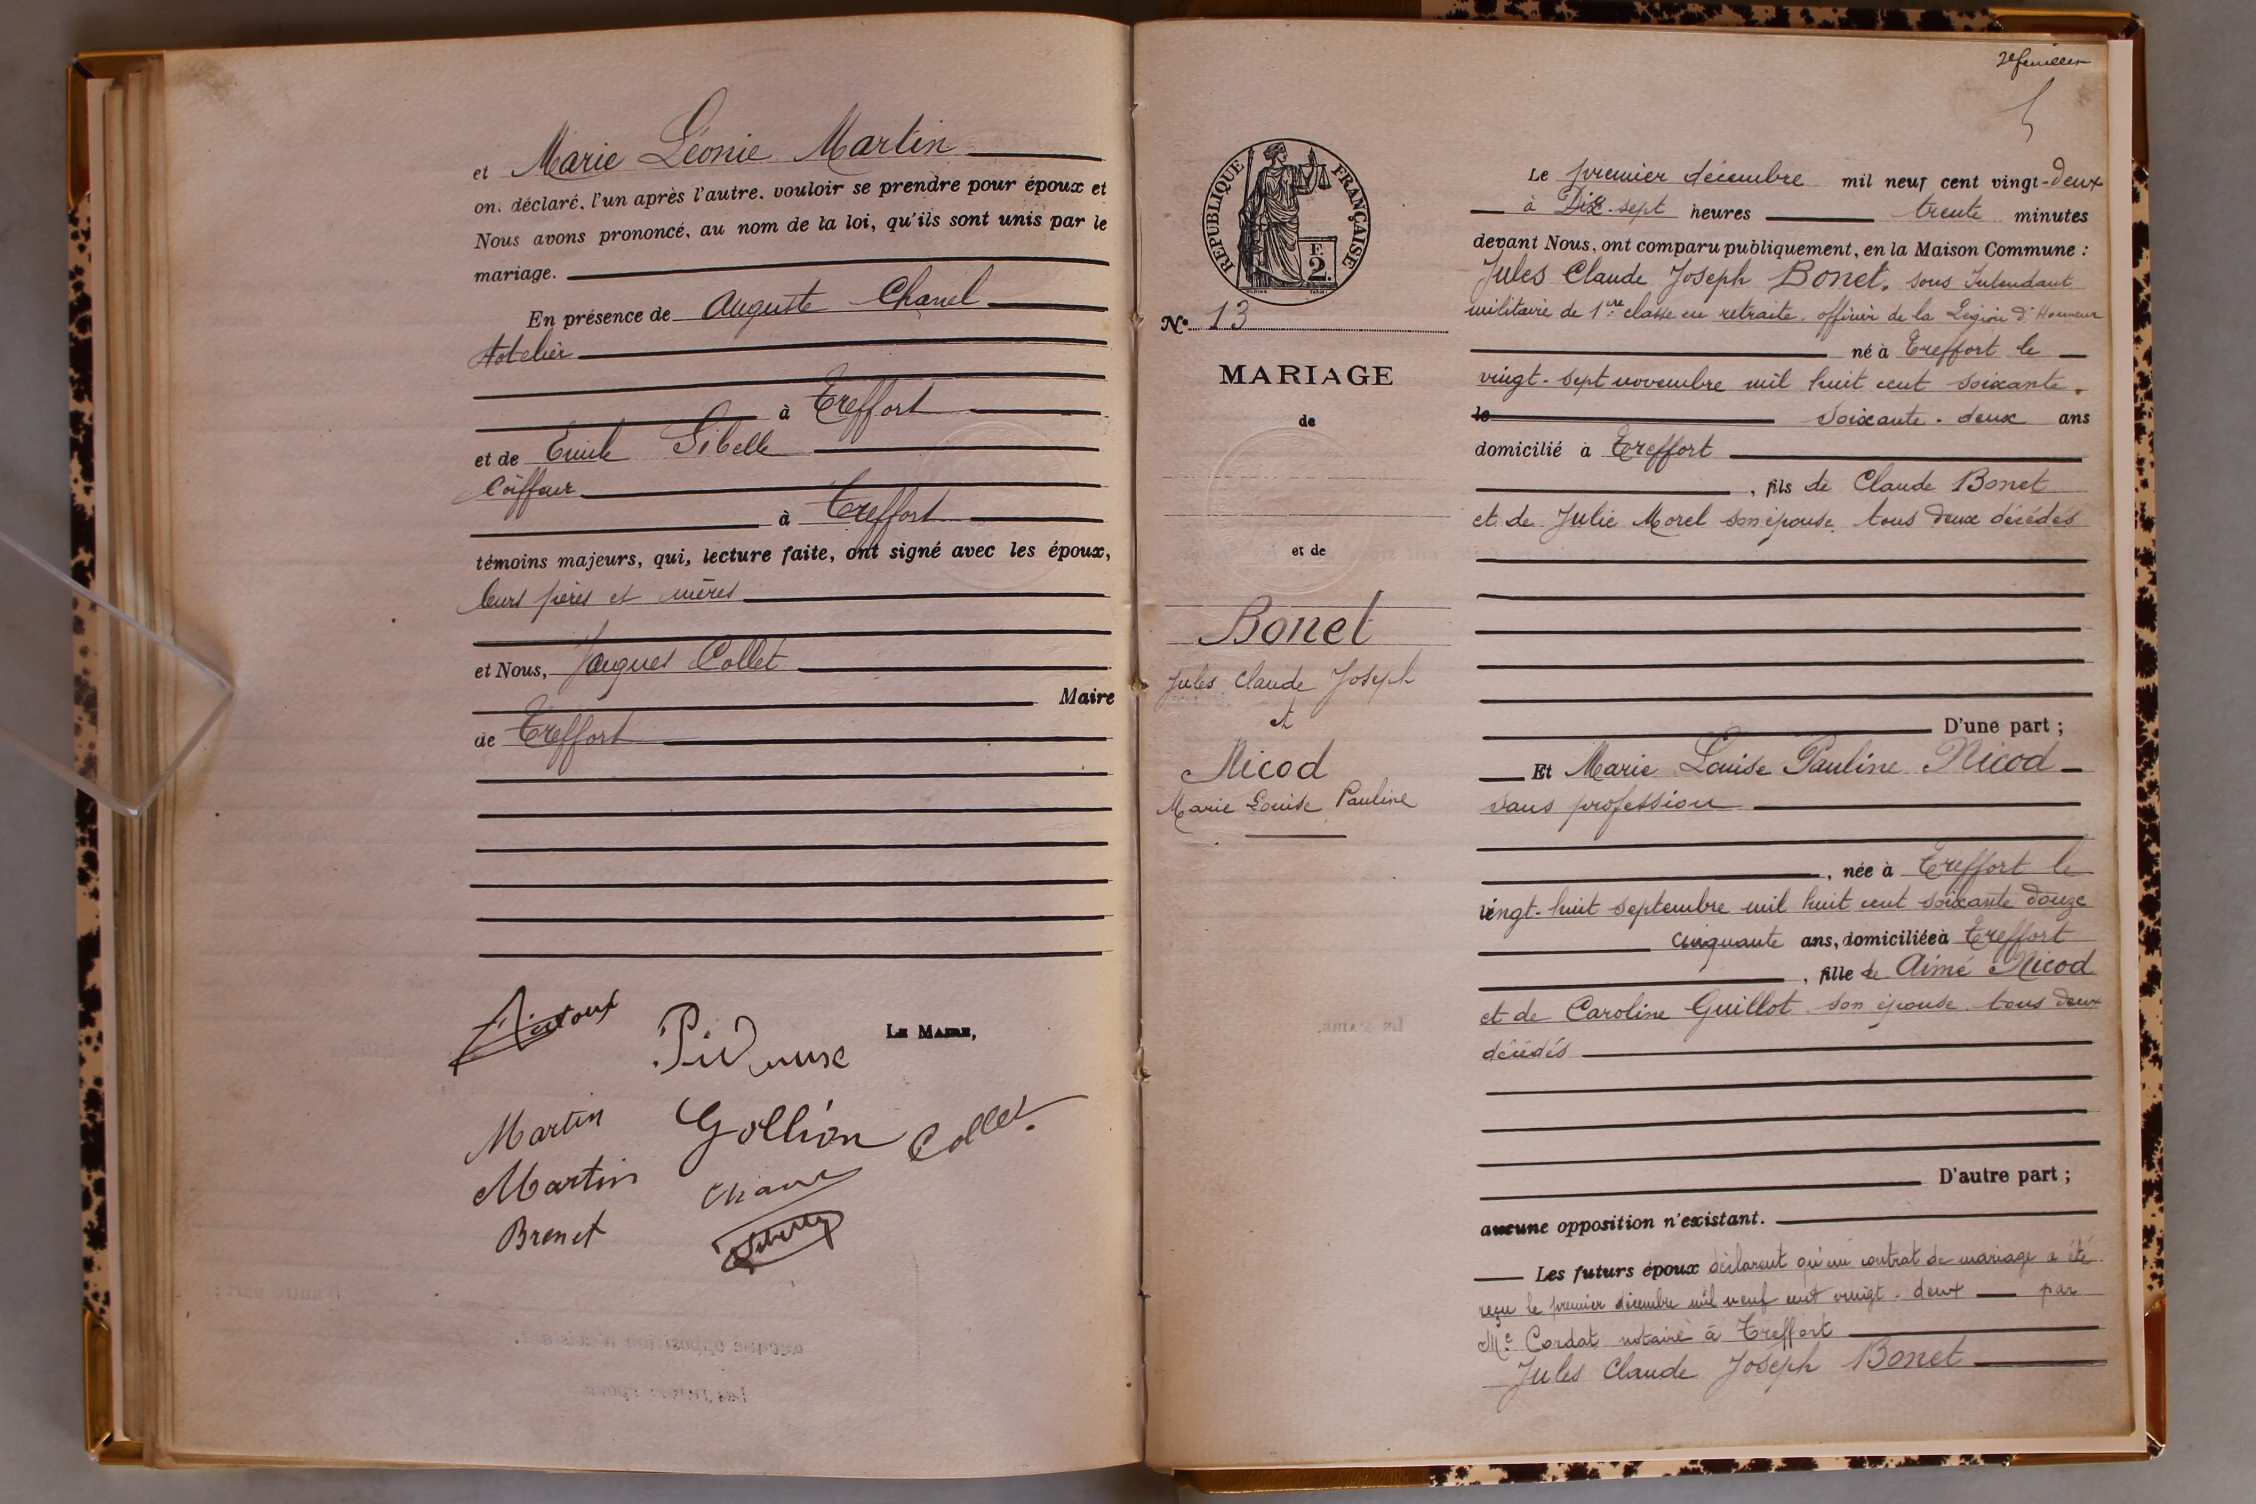 et Marie Léonie Martin
on. déclaré. l'un après l'autre. vouloir se prendre pour époux et
Nous avons prononcé, au nom de la loi, qu'ils sont unis par le
mariage.
En présence de Auguste Chanel
Hotelier
à Treffort
et de Emile Sibelle
Coiffeur
à Treffort
témoins majeurs, qui, lecture faite, ont signé avec les époux,
leurs pères et mères
et Nous, Jacques Collet
Maire
de Treffort
LE MAIRE,
Martin
Gollion
Collet
Martin
Brenet
2e feuillet
RÉPUBLIQUE FRANÇAISE
F.
2.
N° 13
MARIAGE
de
et de
Bonet
Jules Claude Joseph
et
Nicod
Marie Louise Pauline
Le premier décembre mil neuf cent vingt-deux
à Dix-sept heures trente minutes
devant Nous, ont comparu publiquement, en la Maison Commune :
Jules Claude Joseph Bonet, sous Intendant
militaire de 1ère classe en retraite, officier de la Légion d'Honneur
né à Treffort le
vingt-sept novembre mil huit cent soixante,
le soixante-deux ans
domicilié à Treffort
, fils de Claude Bonet
et de Julie Morel son épouse tous deux décédés
D'une part ;
Et Marie Louise Pauline Nicod
sans profession
, née à Treffort le
vingt-huit septembre mil huit cent soixante douze
cinquante ans, domiciliée à Treffort
, fille de Aimé Nicod
et de Caroline Guillot son épouse tous deux
décédés
D'autre part ;
aucune opposition n'existant.
Les futurs époux déclarent qu'un contrat de mariage a été
reçu le premier décembre mil neuf cent vingt-deux par
Me Cordat notaire à Treffort
Jules Claude Joseph Bonet